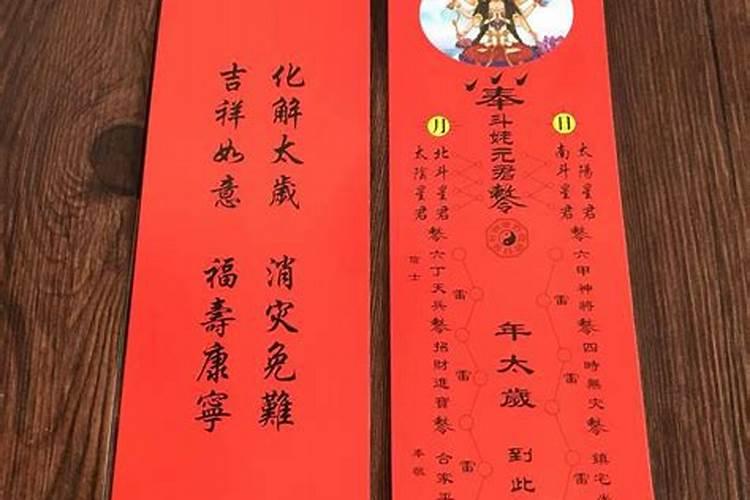 化解太歲 消灾免難
吉祥如意 福壽康寧
奉
斗姥元君勅令
日
月
太陽星君
南斗星君
北斗星君
太陰星君
勅六甲神將勅四時無灾勅
勅六丁天兵勅招財進寶勅
雷
雷
雷
雷
雷
雷
信士
年太歲到此
鎮宅
合家平
奉敬